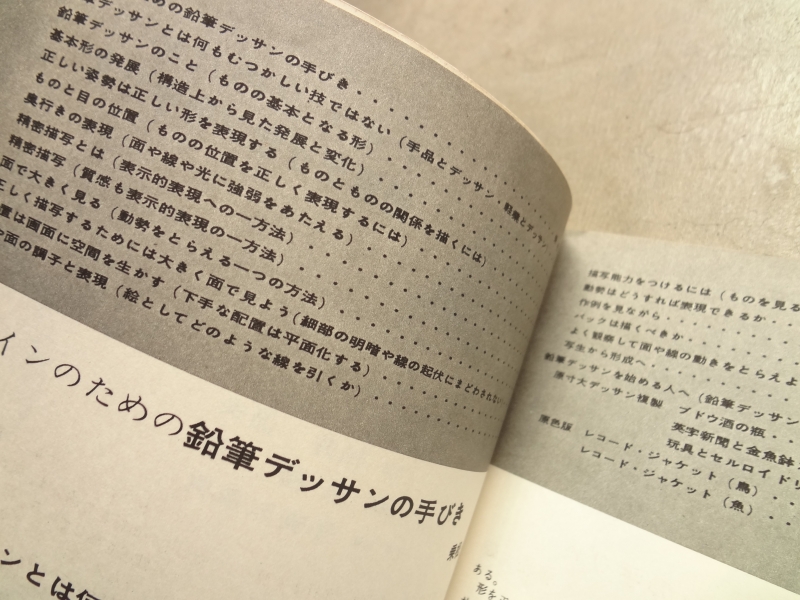 めの鉛筆デッサンの手びき
デッサンとは何もむつかしい技ではない（手品とデッサン・
鉛筆デッサンのこと（ものの基本となる形）
基本形の発展（構造上から見た発展と変化）
正しい姿勢は正しい形を表現する（ものとものの関係を描くには）
ものと目の位置（ものの位置を正しく表現するには）
奥行きの表現（面や線や光に強弱をあたえる）
精密描写とは（表示的表現への一方法）
精密描写（質感も表示的表現の一方法）
面で大きく見る（動勢をとらえる一つの方法）
正しく描写するためには大きく面で見よう（細部の明暗や線の起伏にまどわされない
置は画面に空間を生かす（下手な配置は平面化する）
や面の調子と表現（絵としてどのような線を引くか）
インのための鉛筆デッサンの手びき
ンとは何
描写能力をつけるには（ものを見る
動勢はどうすれば表現できるか
作例を見ながら
バックは描くべきか
よく観察して面や線の動きをとらえよ
写生から形成へ
鉛筆デッサンを始める人へ（鉛筆デッサン
原寸大デッサン複製 ブドウ酒の瓶
英字新聞と金魚鉢
玩具とセルロイド
原色版 レコード・ジャケット（鳥）
レコード・ジャケット（魚）
ある。
形を